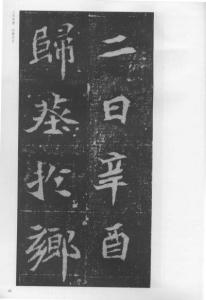 二日辛酉
歸葬於鄉